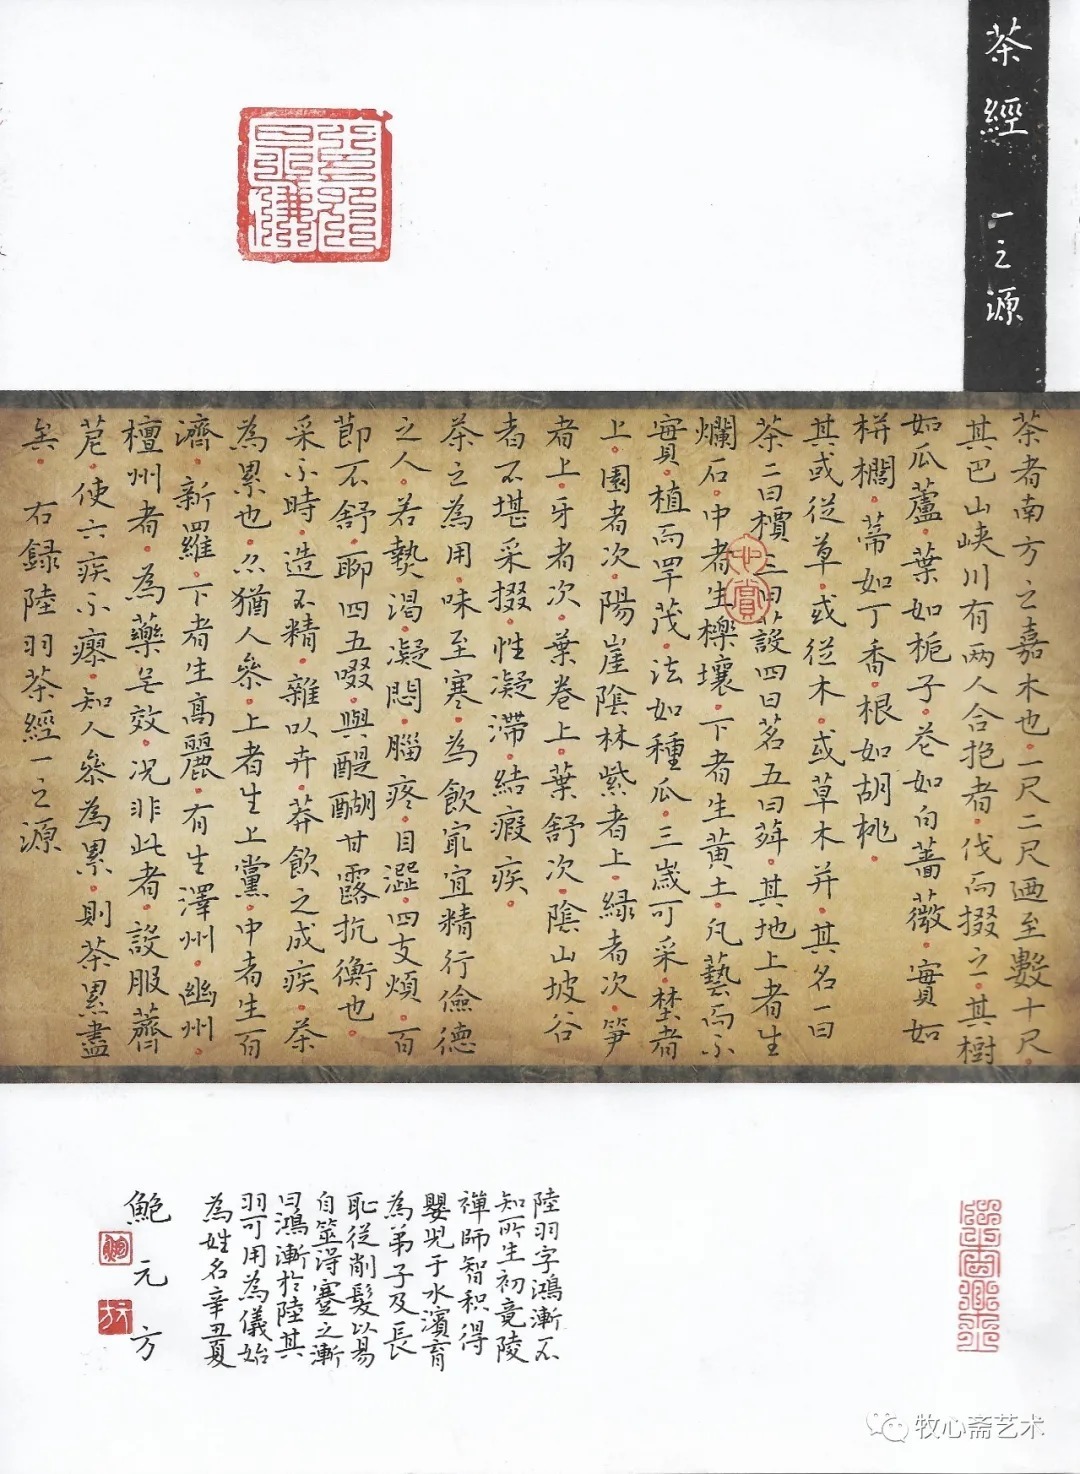 茶經 一之源
茶者南方之嘉木也一尺二尺迺至數十尺
其巴山峽川有两人合抱者伐而掇之其樹
如瓜蘆葉如梔子花如白薔薇實如
栟櫚蒂如丁香根如胡桃
其或從草或從木或草木并其名一曰
茶二曰檟三曰蔎四曰茗五曰荈其地上者生
爛石中者生櫟壤下者生黄土凡藝而不
實植而罕茂法如種瓜三歲可采埜者
上園者次陽崖陰林紫者上緑者次笋
者上牙者次葉卷上葉舒次陰山坡谷
者不堪采掇性凝滯結瘕疾
茶之為用味至寒為飲宜精行儉德
之人若熱渴凝悶腦疼目澀四支煩百
節不舒聊四五啜與醍醐甘露抗衡也
采不時造不精雜以卉莽飲之成疾茶
為累也亦猶人參上者生上黨中者生百
濟新羅下者生高麗有生澤州幽州
檀州者為藥無效况非此者設服薺
苨使六疾不瘳知人參為累則茶累盡
矣 右録陸羽茶經一之源
陸羽字鴻漸不
知所生初竟陵
禪師智積得
嬰児于水濱育
為弟子及長
恥從削髮以易
自筮得蹇之漸
曰鴻漸於陸其
羽可用為儀始
為姓名辛丑夏
鮑元方
心賞
牧心斋艺术